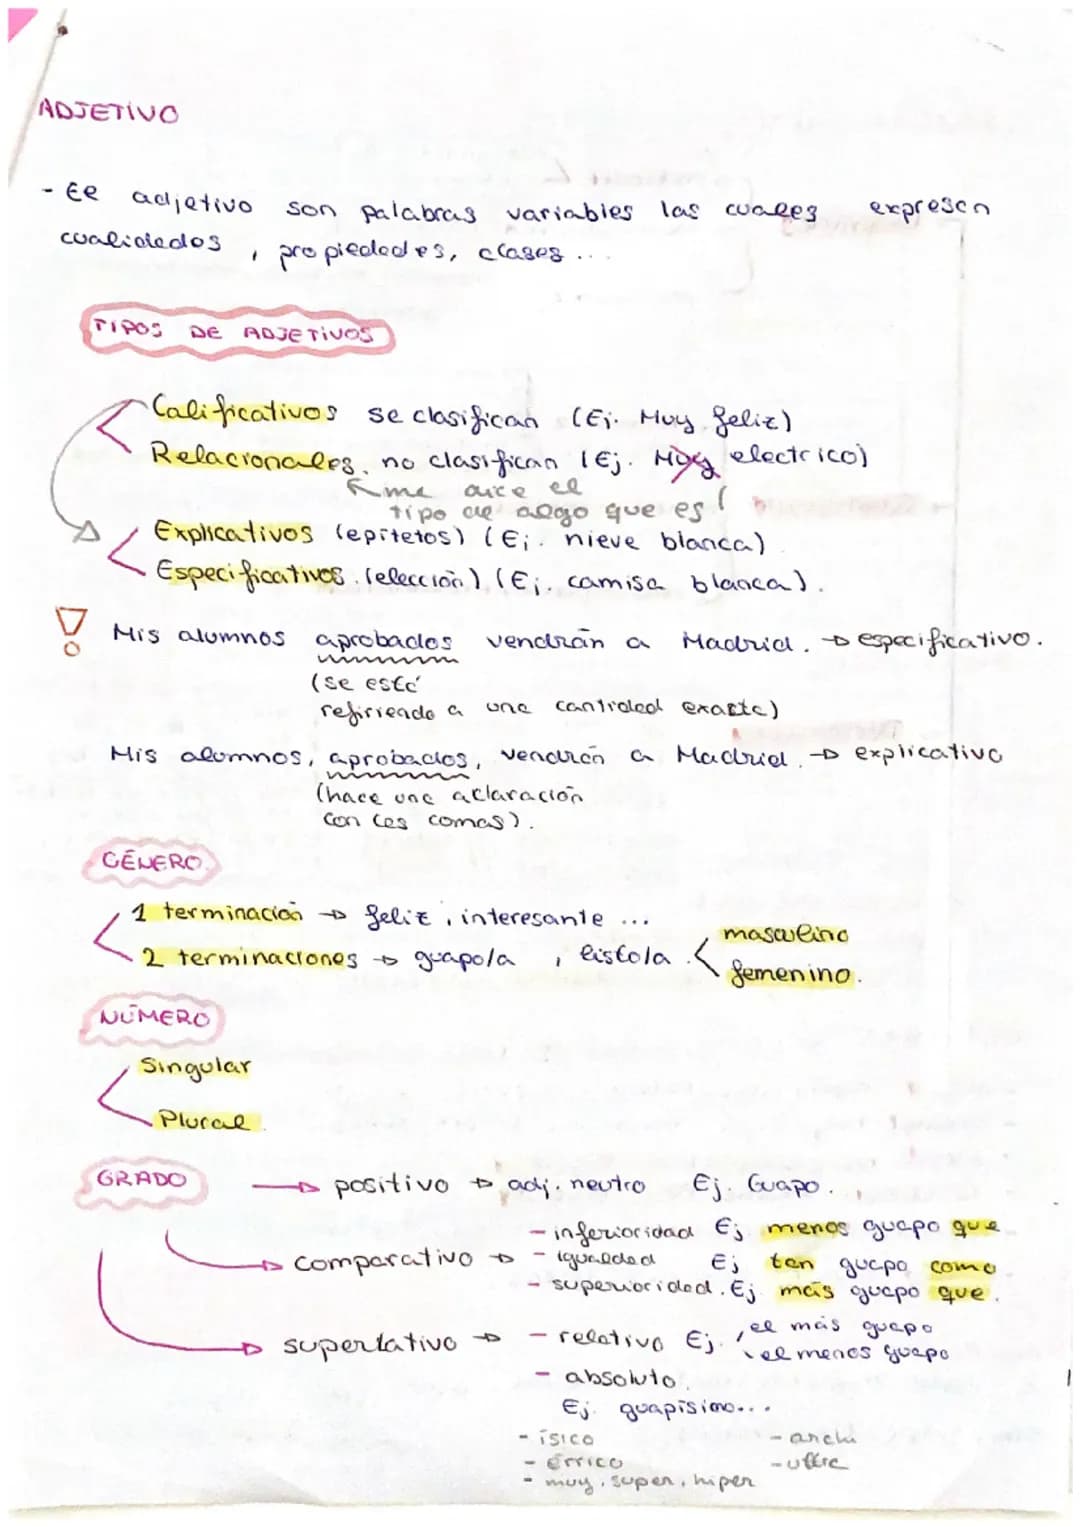 ADJETIVO
- El adjetivo son palabras variables las cuales expresan
cualidades, propiedades, clases...
TIPOS DE ADJETIVOS
Calificativos se clasifican (Ej. Muy feliz)
Relacionales. no clasifican (Ej. Muy electrico)
me dice el
tipo de algo que es!
Explicativos (epítetos) (Ej. nieve blanca)
Especificativos. (elección) (Ej. camisa blanca).
! Mis alumnos aprobados vendrán a Madrid. → especificativo.
(se está
refiriendo a una cantidad exacta)
Mis alumnos, aprobados, vendrán a Madrid. → explicativo
(hace una aclaración
con las comas).
GÉNERO.
1 terminación → feliz, interesante ...
2 terminaciones → guapo/a, listo/a.
masculino
femenino.
NÚMERO
Singular
Plural.
GRADO
→ positivo → adj. neutro Ej. Guapo.
→ comparativo → - inferioridad Ej menos guapo que
- igualdad Ej tan guapo como
- superioridad. Ej más guapo que.
→ superlativo → - relativo Ej. el más guapo
el menos guapo
- absoluto.
Ej. guapísimo...
- ísico - archi
- érrico - ultra
- muy, super, hiper